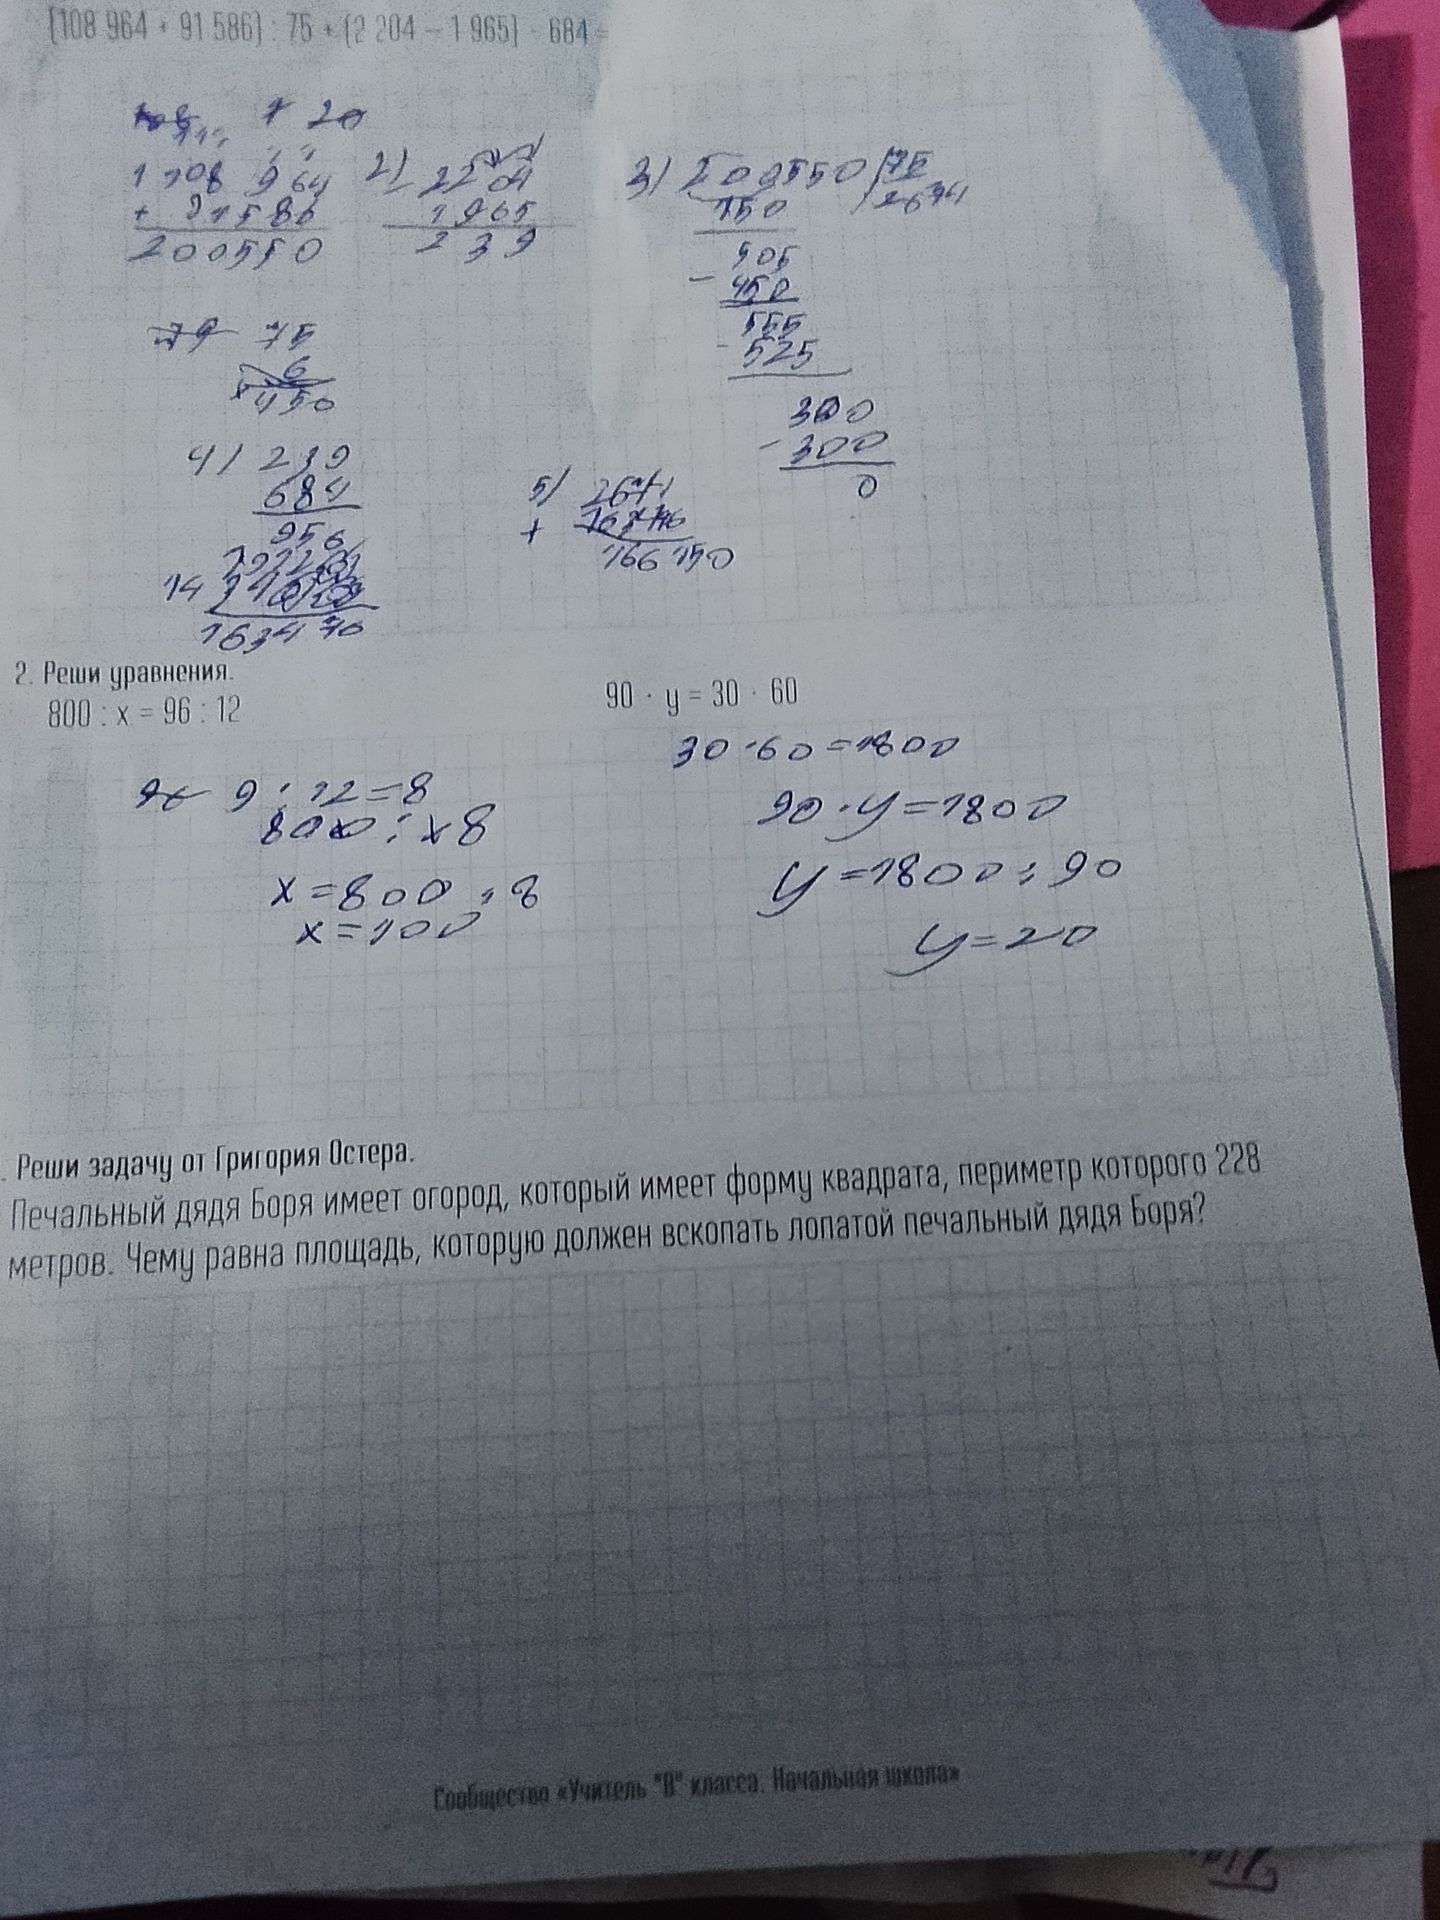 (108 964 + 91 586) : 75 + (2 204 – 1 965) · 684 =
108 964
+ 91586
200550
2) 2204
1965
239
3) 200550 75
2674
150
505
- 450
555
- 525
300
- 300
0
75
6
x 450
4) 239
684
956
163476
5) 2674
+ 163476
166150
2. Реши уравнения.
800 : х = 96 : 12
9 : 12 = 8
800 : x 8
x = 800 : 8
x = 100
90 · у = 30 · 60
30 · 60 = 1800
90 · y = 1800
y = 1800 : 90
y = 20
. Реши задачу от Григория Остера.
Печальный дядя Боря имеет огород, который имеет форму квадрата, периметр которого 228
метров. Чему равна площадь, которую должен вскопать лопатой печальный дядя Боря?
Сообщество «Учитель "В" класса. Начальная школа»